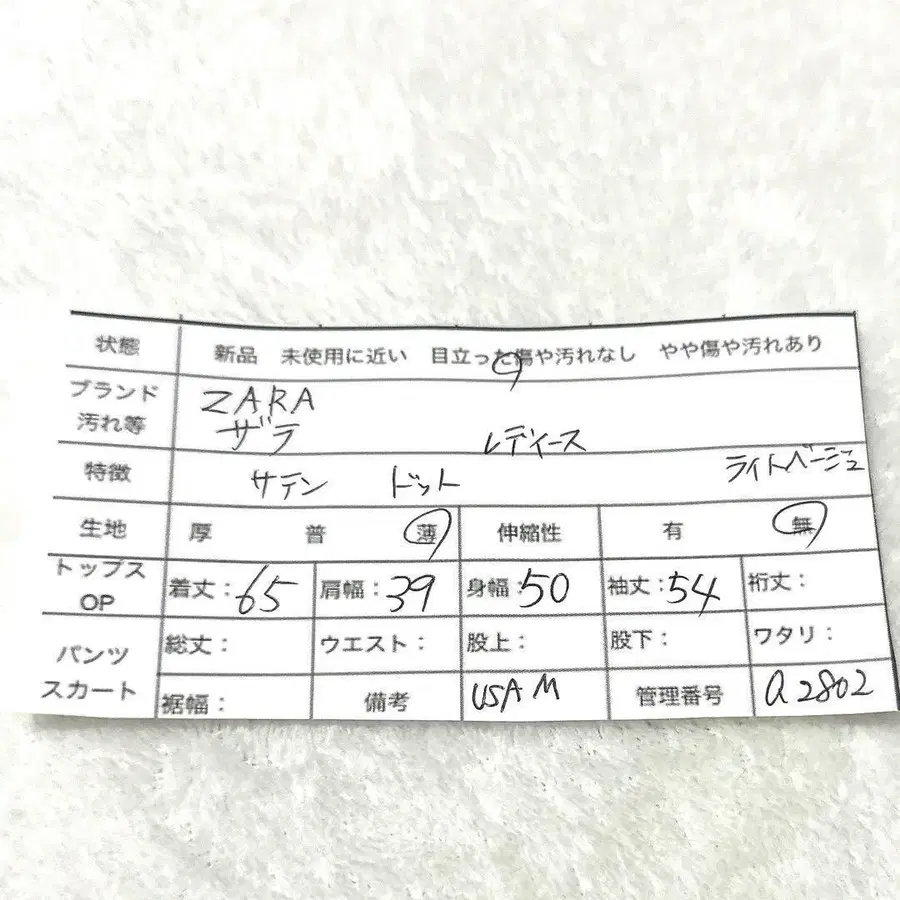 状態 新品 未使用に近い 目立った傷や汚れなし やや傷や汚れあり
ブランド ZARA
汚れ等 ザラ レディース
特徴 サテン ドット ライトベージュ
生地 厚 普 薄 伸縮性 有 無
トップス OP 着丈:65 肩幅:39 身幅:50 袖丈:54 裄丈:
パンツ 総丈: ウエスト: 股上: 股下: ワタリ:
スカート 裾幅: 備考 USA M 管理番号 a2802